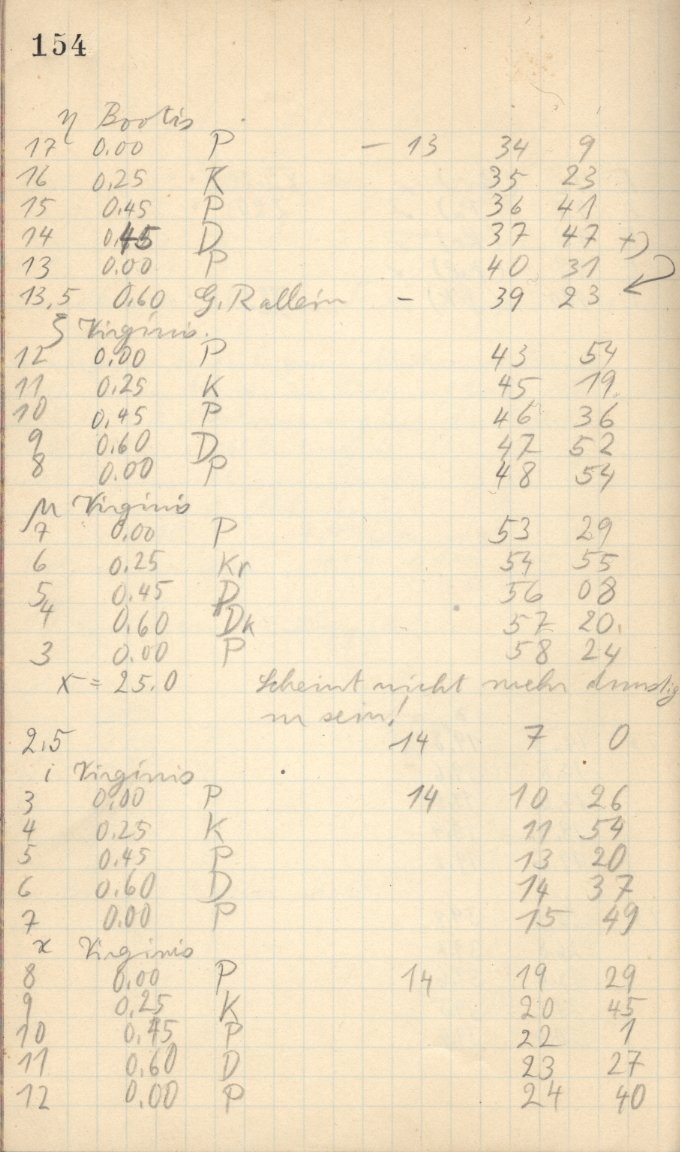 154
η Bootis
17 0.00 P – 13 34 9
16 0.25 K 35 23
15 0.45 P 36 41
14 0.45 D 37 47 +)
13 0.00 P 40 31
13,5 0.60 G. – 39 23
ζ Virginis.
12 0.00 P 43 54
11 0.25 K 45 19
10 0.45 P 46 36
9 0.60 D 47 52
8 0.00 P 48 54
μ Virginis
7 0.00 P 53 29
6 0.25 Kr 54 55
5 0.45 D 56 08
4 0.60 Dk 57 20.
3 0.00 P 58 24
x = 25.0 Scheint nicht mehr dunstig
zu sein!
2,5 14 7 0
i Virginis
3 0.00 P 14 10 26
4 0.25 K 11 54
5 0.45 P 13 20
6 0.60 D 14 37
7 0.00 P 15 49
κ Virginis
8 0.00 P 14 19 29
9 0.25 K 20 45
10 0.45 P 22 1
11 0.60 D 23 27
12 0.00 P 24 40